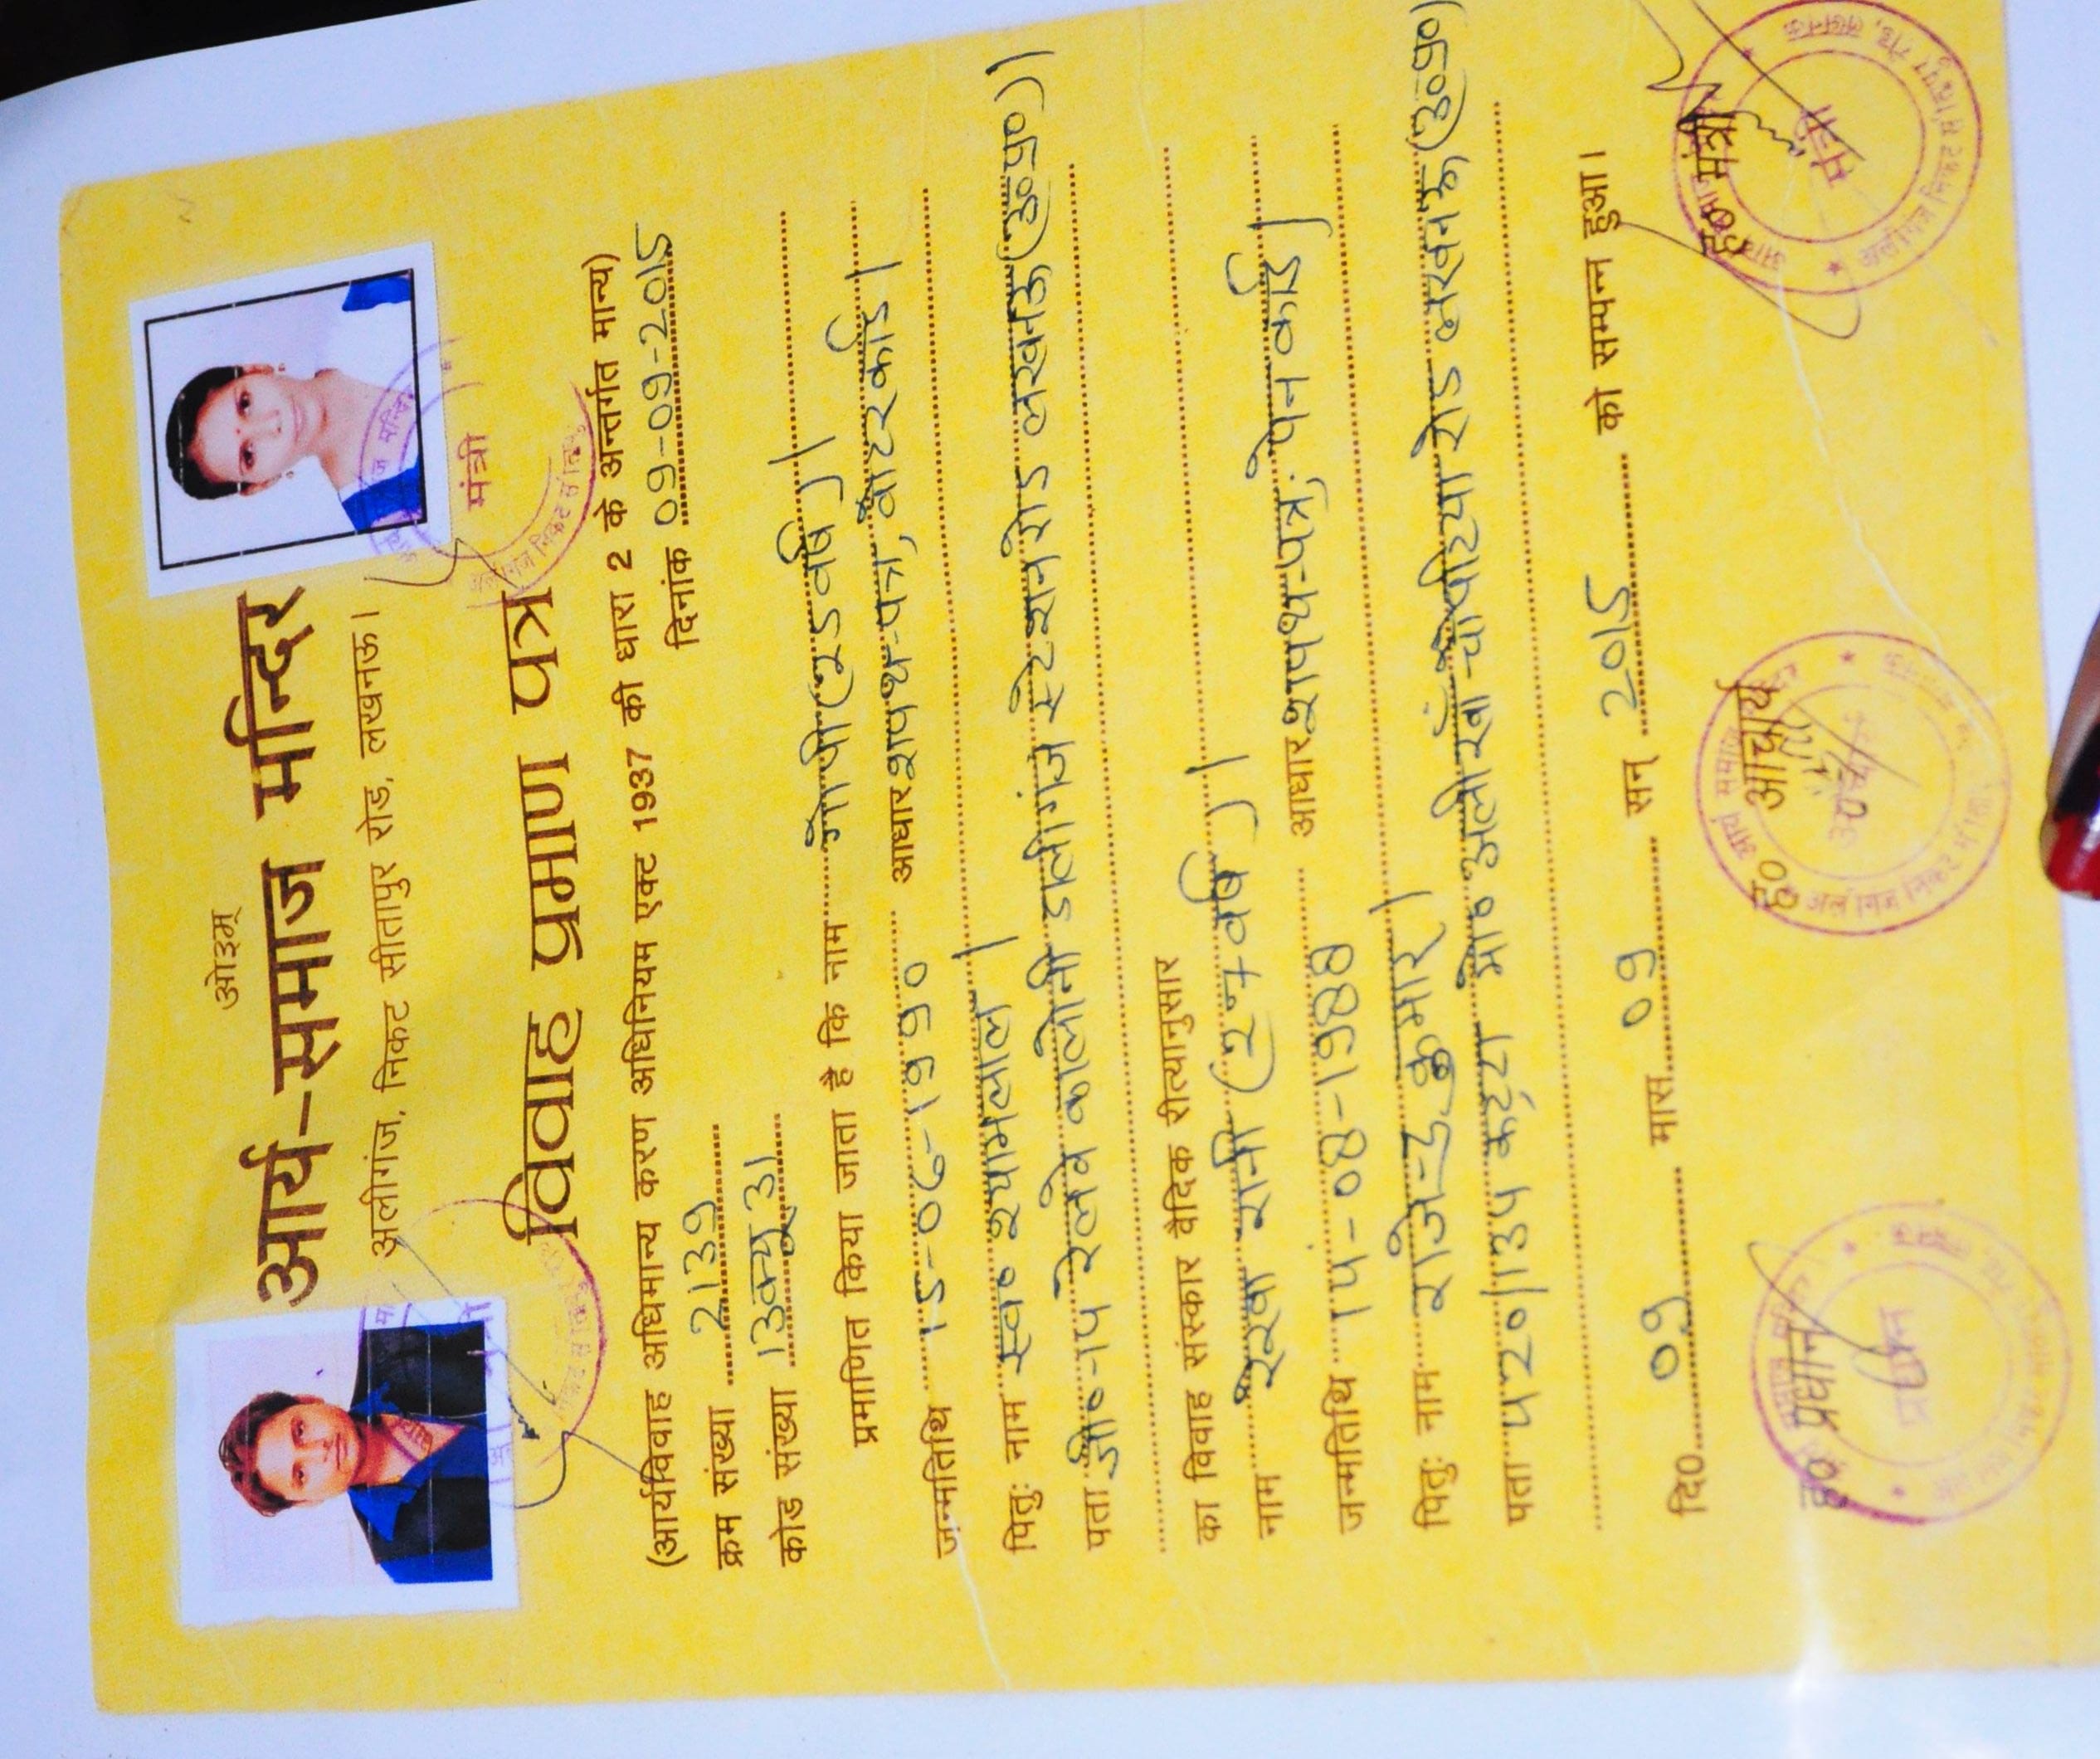 ओ३म्
आर्य-समाज मन्दिर
अलीगंज, निकट सीतापुर रोड, लखनऊ।
विवाह प्रमाण पत्र
(आर्यविवाह अधिमान्य करण अधिनियम एक्ट 1937 की धारा 2 के अन्तर्गत मान्य)
क्रम संख्या 2139 दिनांक 09-09-2015
कोड संख्या
प्रमाणित किया जाता है कि नाम गोपी (25 वर्ष)।
जन्मतिथि 15-08-1990 आधार शपथ-पत्र, वोटर कार्ड।
पितुः नाम स्व० श्यामलाल।
पता रेलवे कालोनी डालीगंज स्टेशन रोड लखनऊ (उ०प्र०)।
का विवाह संस्कार वैदिक रीत्यानुसार
नाम रेखा रानी (27 वर्ष)।
जन्मतिथि 14-08-1988 आधार शपथ-पत्र: पेन कार्ड।
पितुः नाम राजेन्द्र कुमार।
पता 520/134 कटरा मो० अली खां चौपटिया रोड लखनऊ (उ०प्र०)
दि० 09 मास 09 सन् 2015 को सम्पन्न हुआ।
ह० प्रधान ह० आचार्य ह० मंत्री
प्रधान
मंत्री
मंत्री